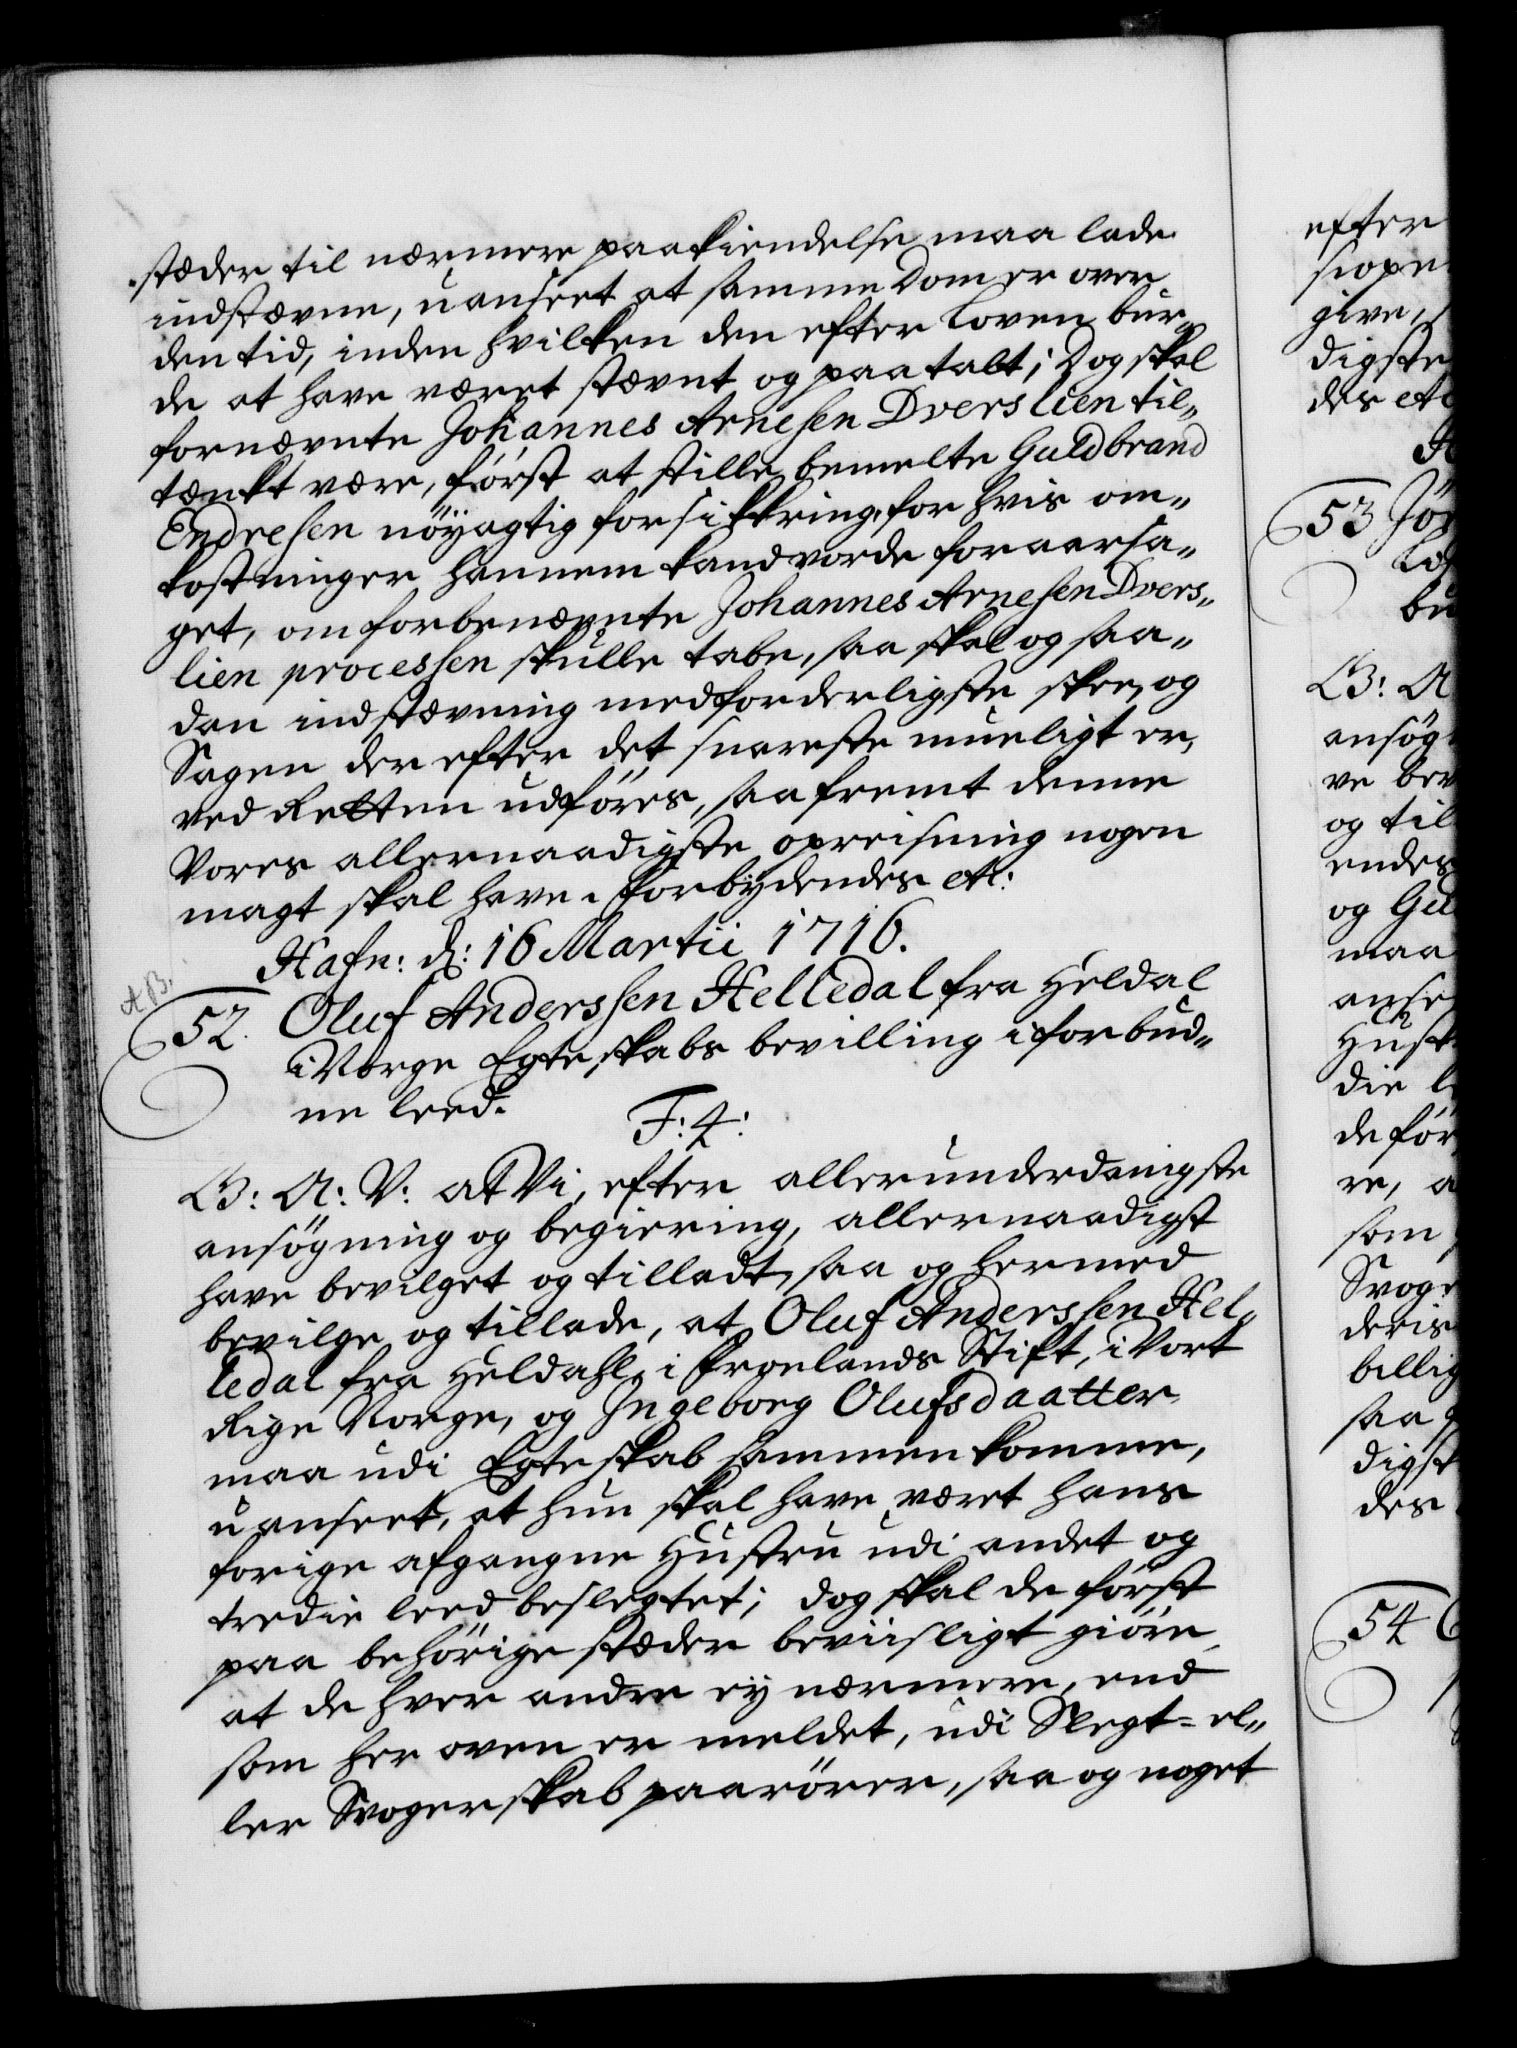 stæder til nærmere paakiendelse maa lade
indstævne, uanseet at samme Dom er over
den tid, inden hvilken den efter Loven bur„
de at have været stævnt og paatalt; Dog skal
fornævnte Johannes Arnesen Dverslien til„
tænkt være, först at stille bemelte Guldbrand
Endresen nöyagtig forsikkring, for hvis om„
kostninger hannem kand vorde foraarsa„
get, om forbenævnte Johannes Arnesen Dvers„
lien processen skulle tabe, saa skal og saa„
dan indstævning med forderligste skee, og
Sagen der efter det snareste mueligt er,
ved Retten udföres, saa fremt denne
Vores allernaadigste opreisning nogen
magt skal have. Forbydendes etc:
Hafn: d: 16 Martii 1716.
AB.
52. Oluf Anderssen Helledal fra Heldal
i Norge Egteskabs bevilling i forbud„
ne leed.
F: 4:
G: A: V: at Vi, efter allerunderdanigste
ansögning og begiering, allernaadigst
have bevilget og tilladt, saa og hermed
bevilge og tillade, at Oluf Anderssen Hel„
ledal fra Heldahl, i Stift, i Vort
Rige Norge, og Ingeborg Olufsdaatter
maa udi Egteskab sammenkomme,
uanseet, at hun skal have været hans
forige afgangne Hustru udi andet og
tredie leed beslegtet; dog skal de först
paa behörige stæder beviisligt giöre,
at de hver andre ey nærmere, end
som her oven er meldet, udi Slegt= el„
ler Svogerskab paarörer, saa og noget
efter
give,
digste
des etc
53 Jör
bu
G: A
ansög
ve bev
og til
endes
og Gu
maa
anse
Hust
die l
de för
re, a
som
Svoge
deris
billig
saa
digst
des
54